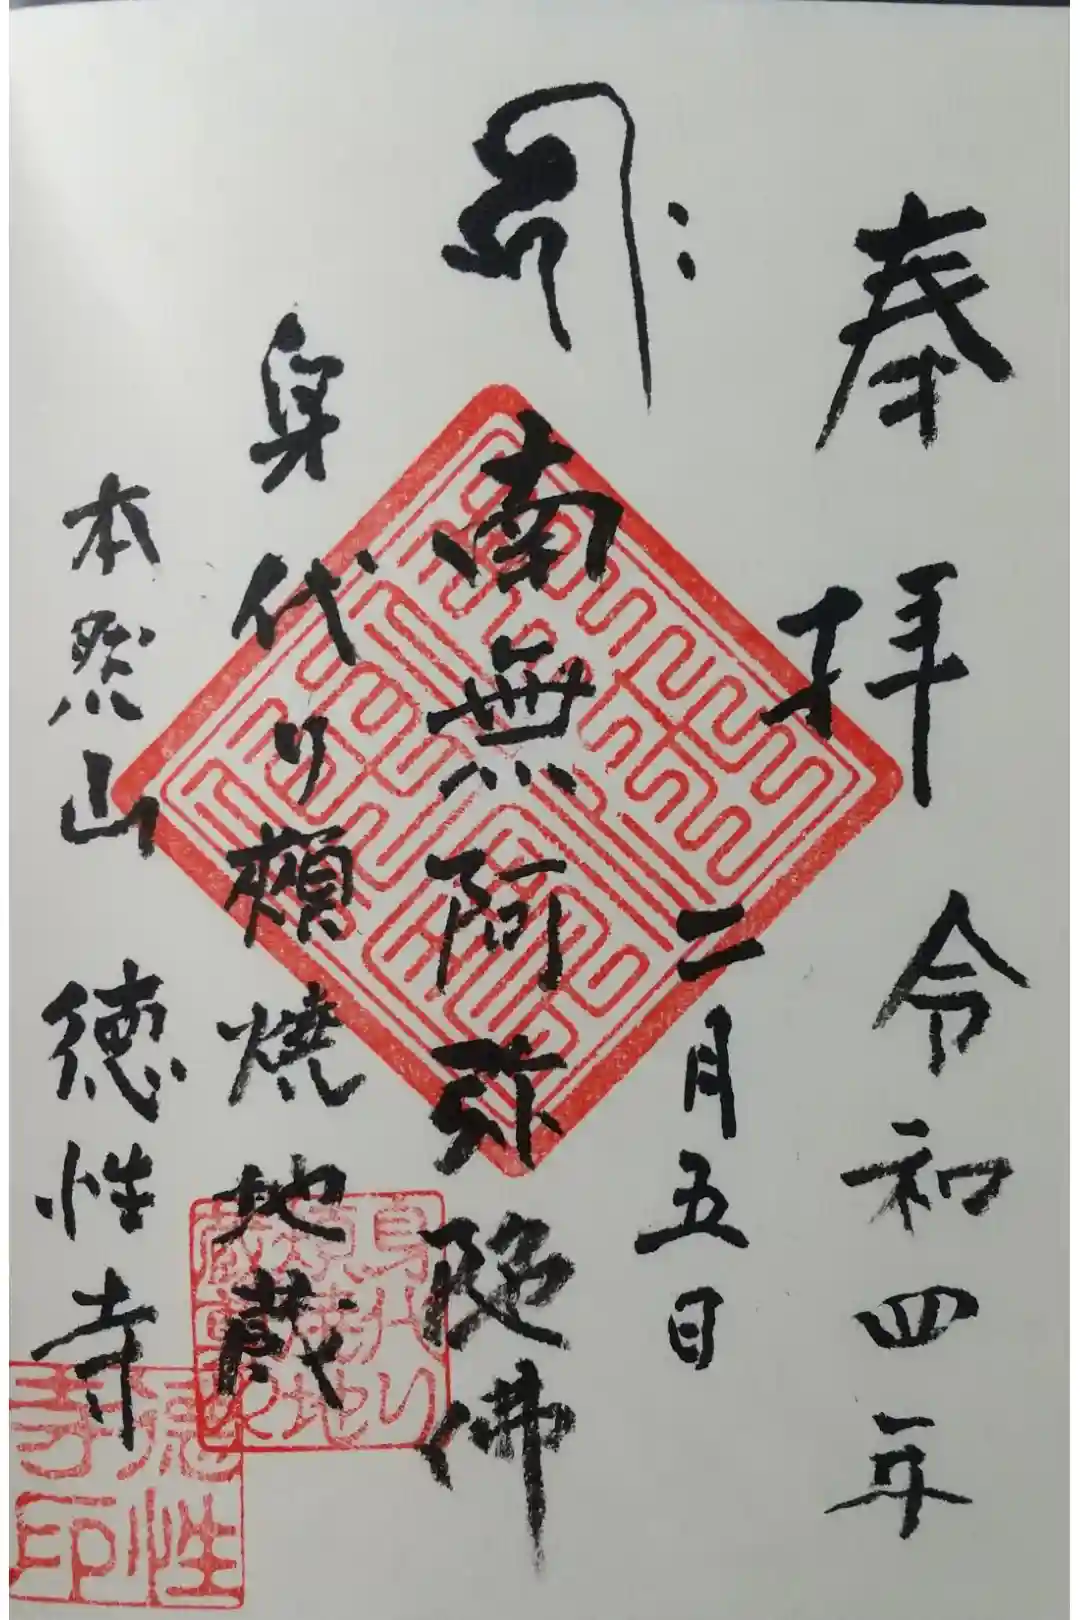 奉拝
令和四年
二月五日
南無阿弥陀佛
身代り頬焼地蔵
本然山 徳性寺
徳性寺印